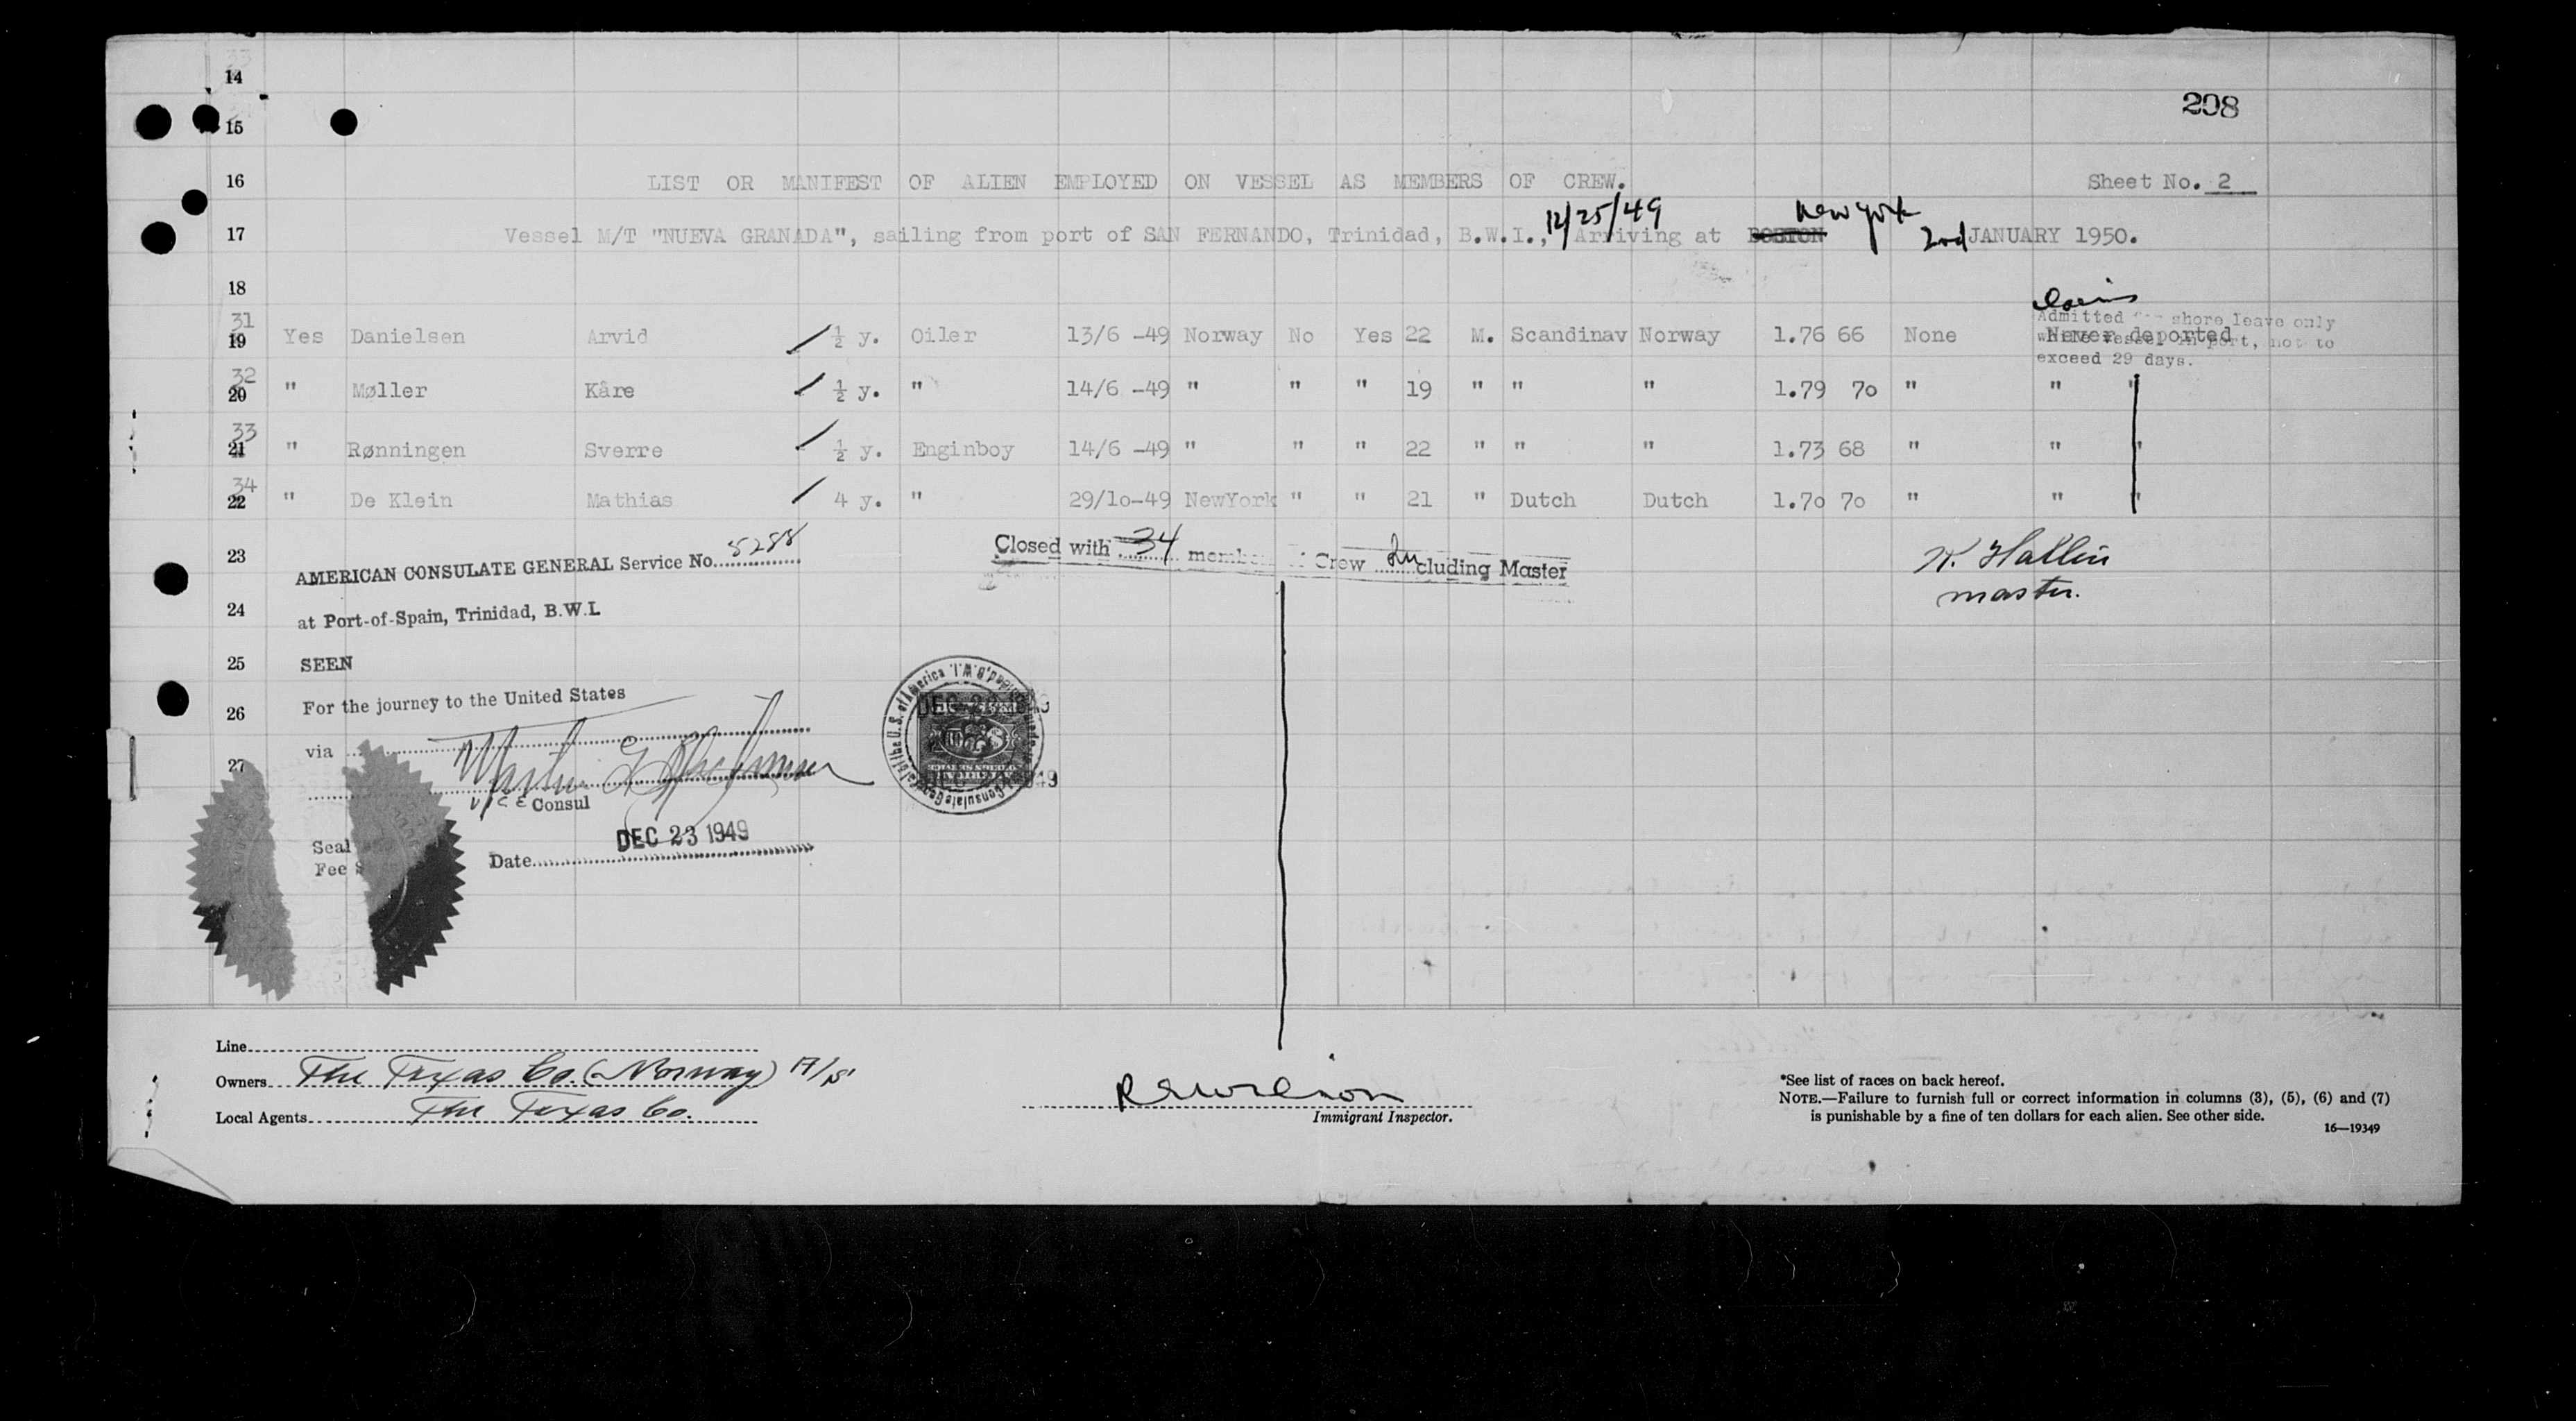 14
208
15
16 LIST OR MANIFEST OF ALIEN EMPLOYED ON VESSEL AS MEMBERS OF CREW. Sheet No. 2
12/25/49 New York
17 Vessel M/T "NUEVA GRANADA", sailing from port of SAN FERNANDO, Trinidad, B.W.I., Arriving at BOSTON 2nd JANUARY 1950.
18
Admitted shore leave only
31 19 Yes Danielsen Arvid ½ y. Oiler 13/6 -49 Norway No Yes 22 M. Scandinav Norway 1.76 66 None Never deported
while vessel in port, not to
exceed 29 days.
32 20 " Møller Kåre ½ y. " 14/6 -49 " " " 19 " " " 1.79 70 " " "
33 21 " Rønningen Sverre ½ y. Enginboy 14/6 -49 " " " 22 " " " 1.73 68 " " "
34 22 " De Klein Mathias 4 y. " 29/1o-49 NewYork " " 21 " Dutch Dutch 1.7o 7o " " "
23 AMERICAN CONSULATE GENERAL Service No. 5288
Closed with 34 members of Crew Including Master
K. Hallin
master.
24 at Port-of-Spain, Trinidad, B.W.I.
25 SEEN
26 For the journey to the United States
27 via
Vice Consul
Seal
Fee $
Date DEC 23 1949
Line
Owners The Texas Co. (Norway) A/S
Local Agents The Texas Co.
Immigrant Inspector.
*See list of races on back hereof.
NOTE.—Failure to furnish full or correct information in columns (3), (5), (6) and (7)
is punishable by a fine of ten dollars for each alien. See other side.
16—19349